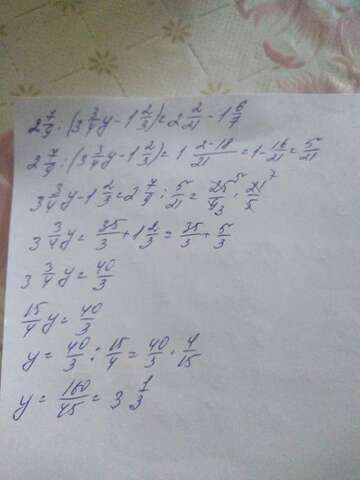 2 7/9 : (3 3/4 y - 1 2/3) = 2 2/21 - 1 6/7
2 7/9 : (3 3/4 y - 1 2/3) = 1 2-18/21 = 1 - 16/21 = 5/21
3 3/4 y - 1 2/3 = 2 7/9 : 5/21 = 25 5/9 3 · 21 7/5
3 3/4 y = 35/3 + 1 2/3 = 35/3 + 5/3
3 3/4 y = 40/3
15/4 y = 40/3
y = 40/3 : 15/4 = 40/3 · 4/15
y = 160/45 = 3 1/3